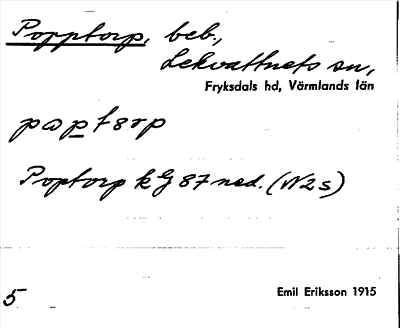 Popptorp, beb.,
Lekvattnets sn,
Fryksdals hd, Värmlands län
Poptorp kG 87 ned. (N2s)
5
Emil Eriksson 1915